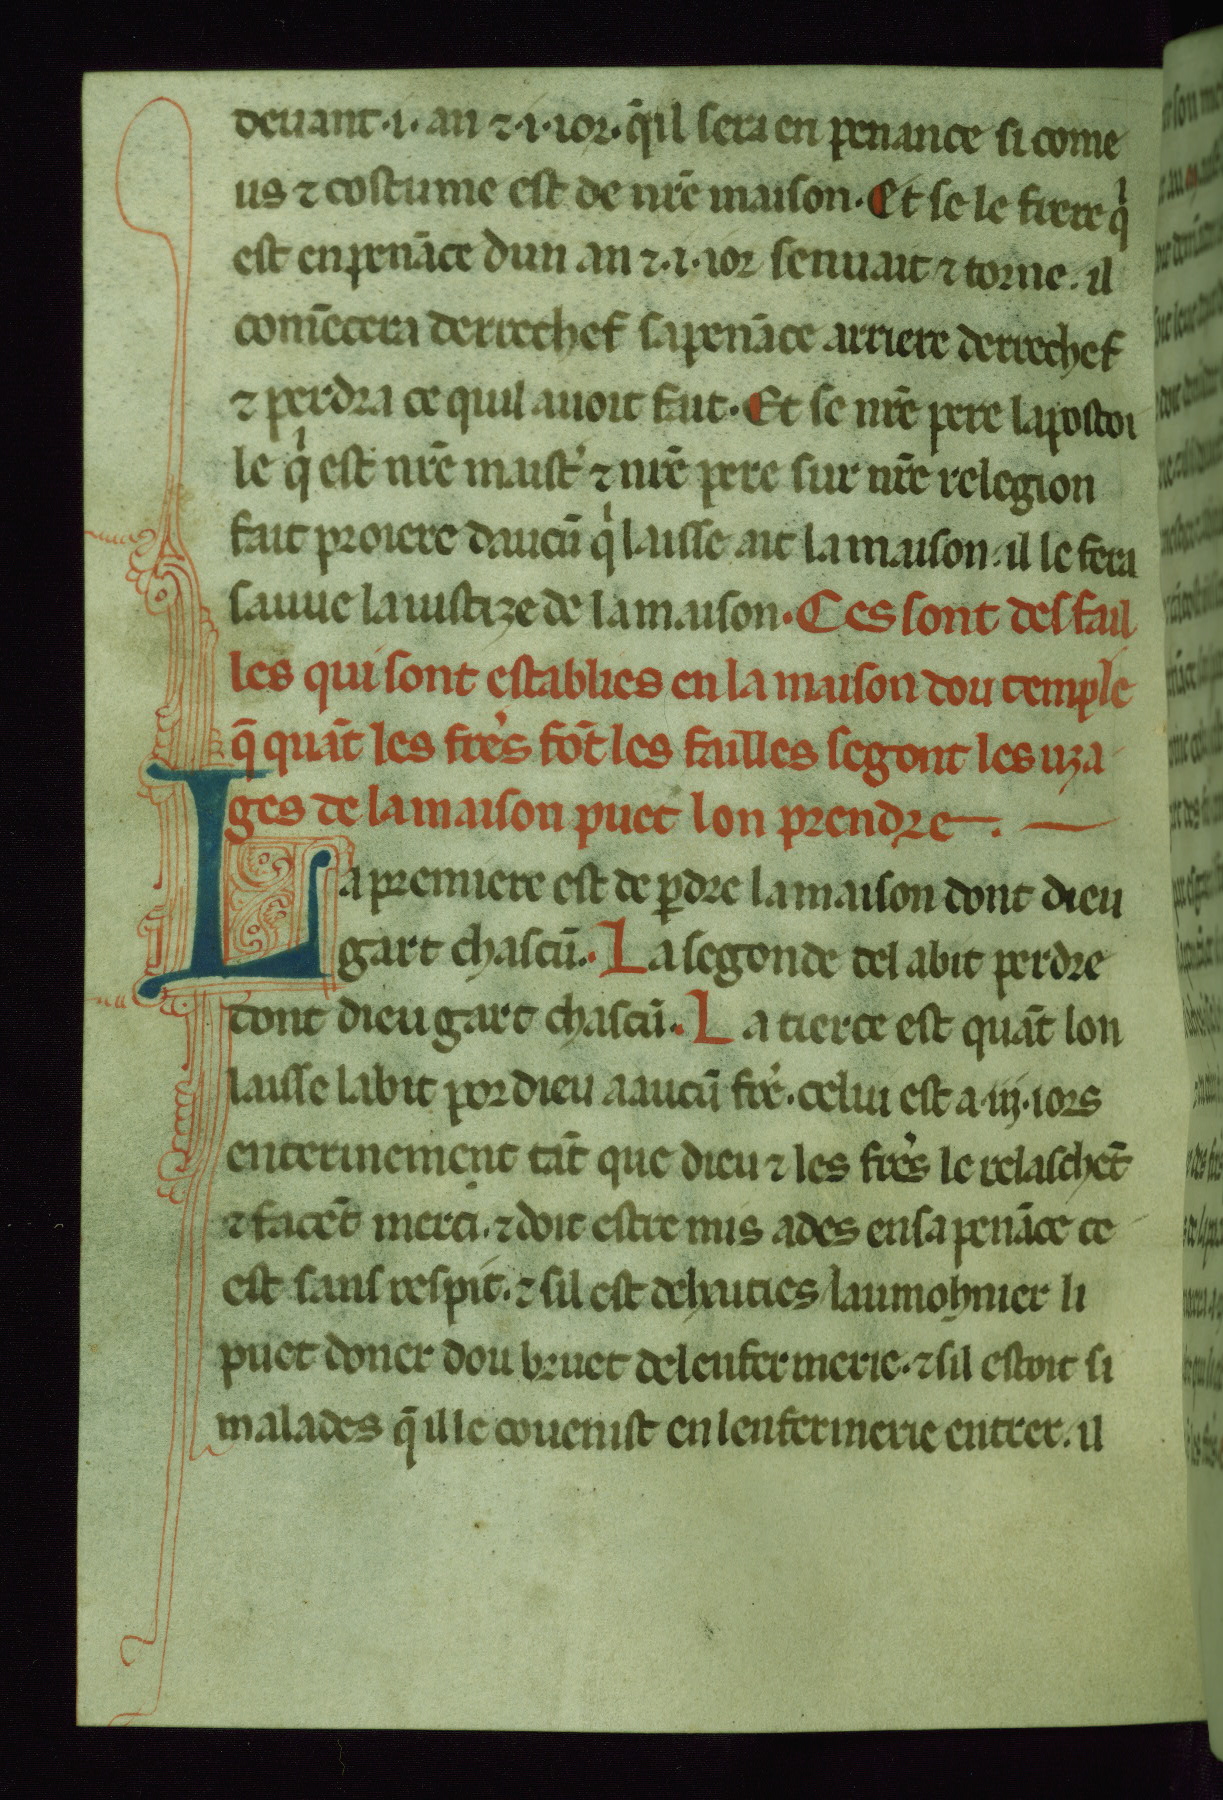 deuant·i· an ⁊·i· ior· q̄il sera en penance si come
us ⁊ costume est de nr̄e maison· Et se le frere qͥ
est en penāce dun an ⁊·i· ior senuait ⁊ torne· il
comēcera derrechef sa penāce arriere derrechef
⁊ perdra ce quil auoit fait· Et se nr̄e pere lapostoi
le qͥ est nr̄e maist᾽ ⁊ nr̄e pere sur nr̄e relegion
fait proiere daucū qͥ laisse ait la maison· il le fera
sauue la iustize de la maison· Ces sont des fail
les qui sont establies en la maison dou temple
q̄ quāt les frēs fōt les failles segont les uza
ges de la maison puet lon prendre—.—
La premiere est de ꝑdre la maison dont dieu
gart chascū· La segonde del abit perdre
dont dieu gart chascū· La tierce est quāt lon
laisse labit por dieu a aucū frē· celui est a·iij·iors
enterinement tāt que dieu ⁊ les frēs le relaschēt
⁊ facēt merci· ⁊ doit estre mis ades en sa penāce ce
est sans respit· ⁊ sil est dehaities laumohnier li
puet doner dou bruet de lenfermerie· ⁊ sil estoit si
malades q̄ il le couenist en lenfermerie entrer· il